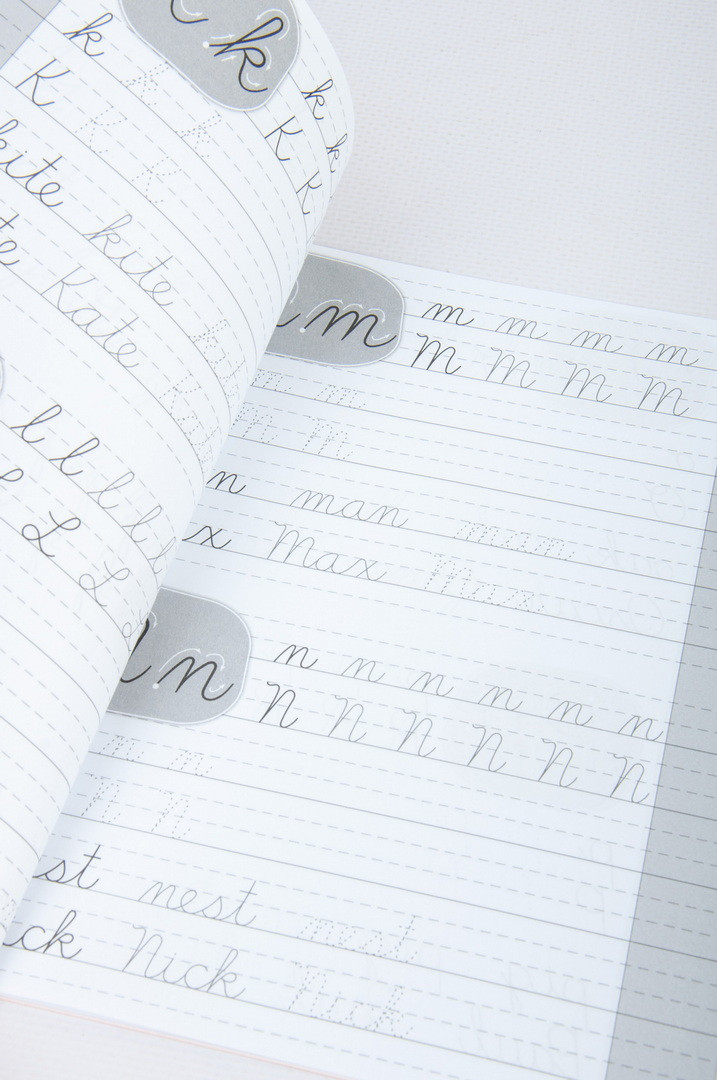 k
k k k k k k
K K K K K
kite kite
Kate
l l l l l
L L L
m
m m m m
M M M M
m m
M M
man man
x Max Max
n
n n n n n n
N N N N N N
n n
N N
st nest nest
ck Nick Nick